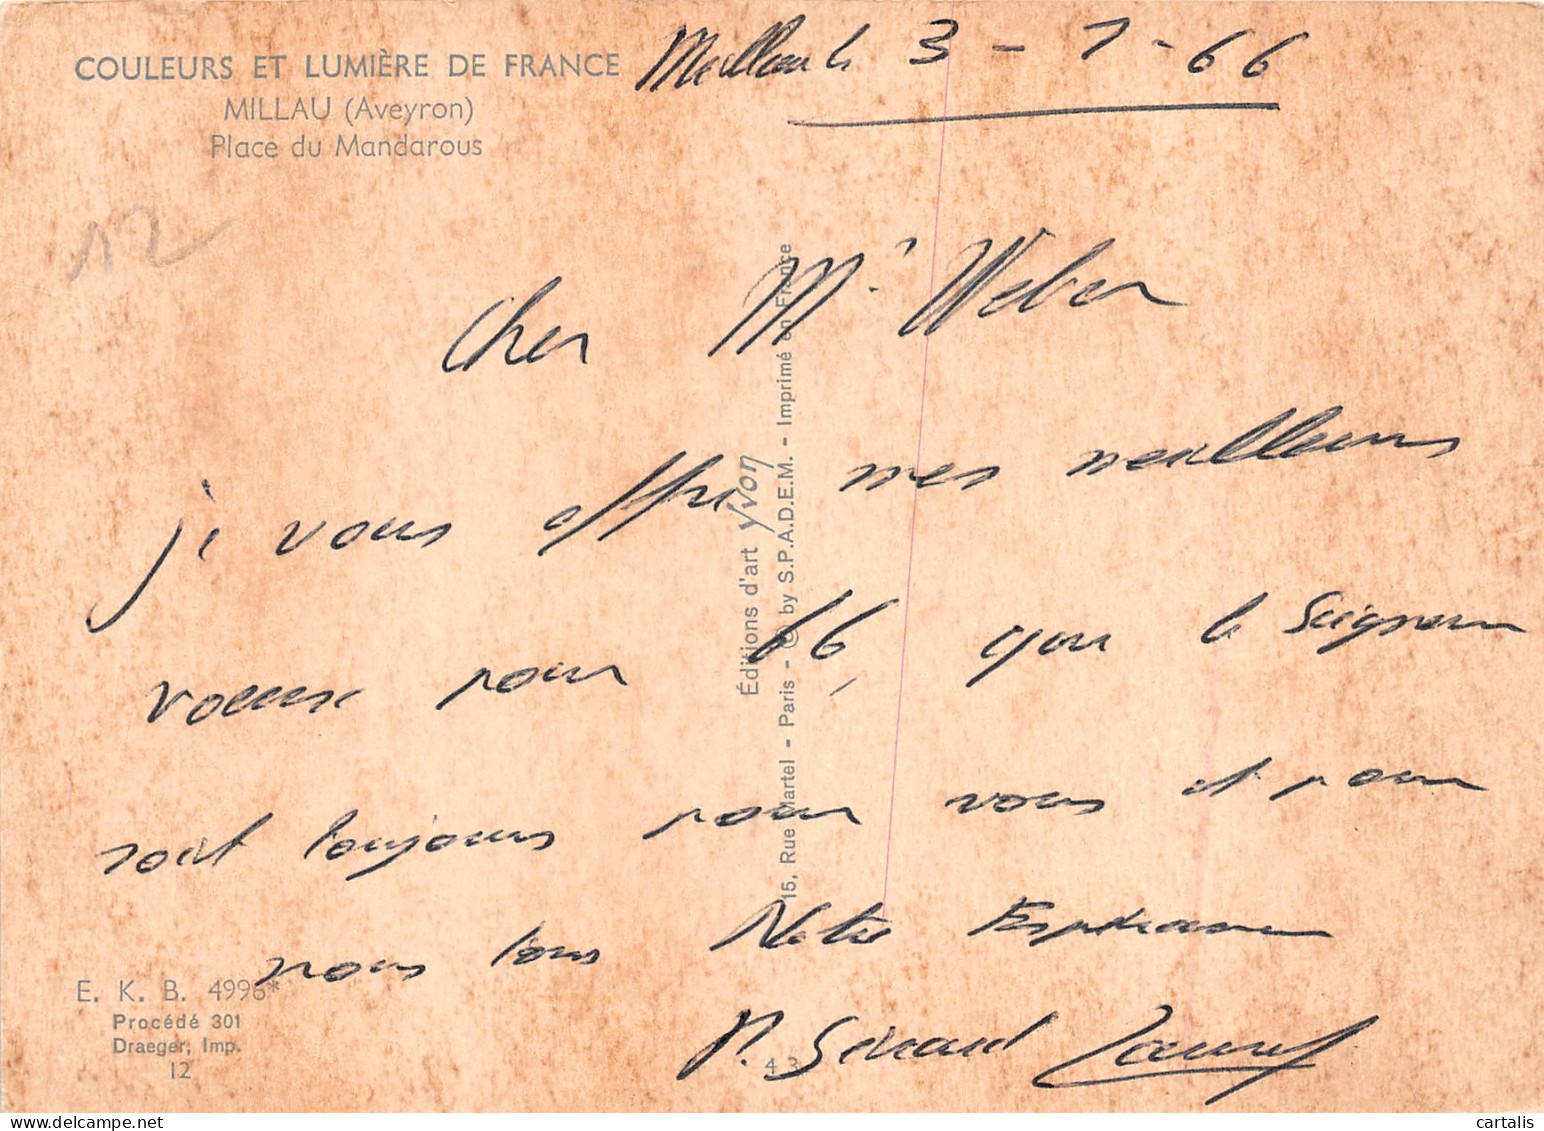 COULEURS ET LUMIÈRE DE FRANCE
MILLAU (Aveyron)
Place du Mandarous
Millau le 3 - 1 - 66
12
Cher Mr Weber
je vous offre mes meilleurs
voeux pour 66, que le Seigneur
soit toujours pour vous et pour
nous tous Notre Espérance
P. Gérard
Éditions d'art yvon
15, Rue Martel - Paris - © by S.P.A.D.E.M. - Imprimé en France
E. K. B. 4996*
Procédé 301
Draeger, Imp.
12
43
cartalis